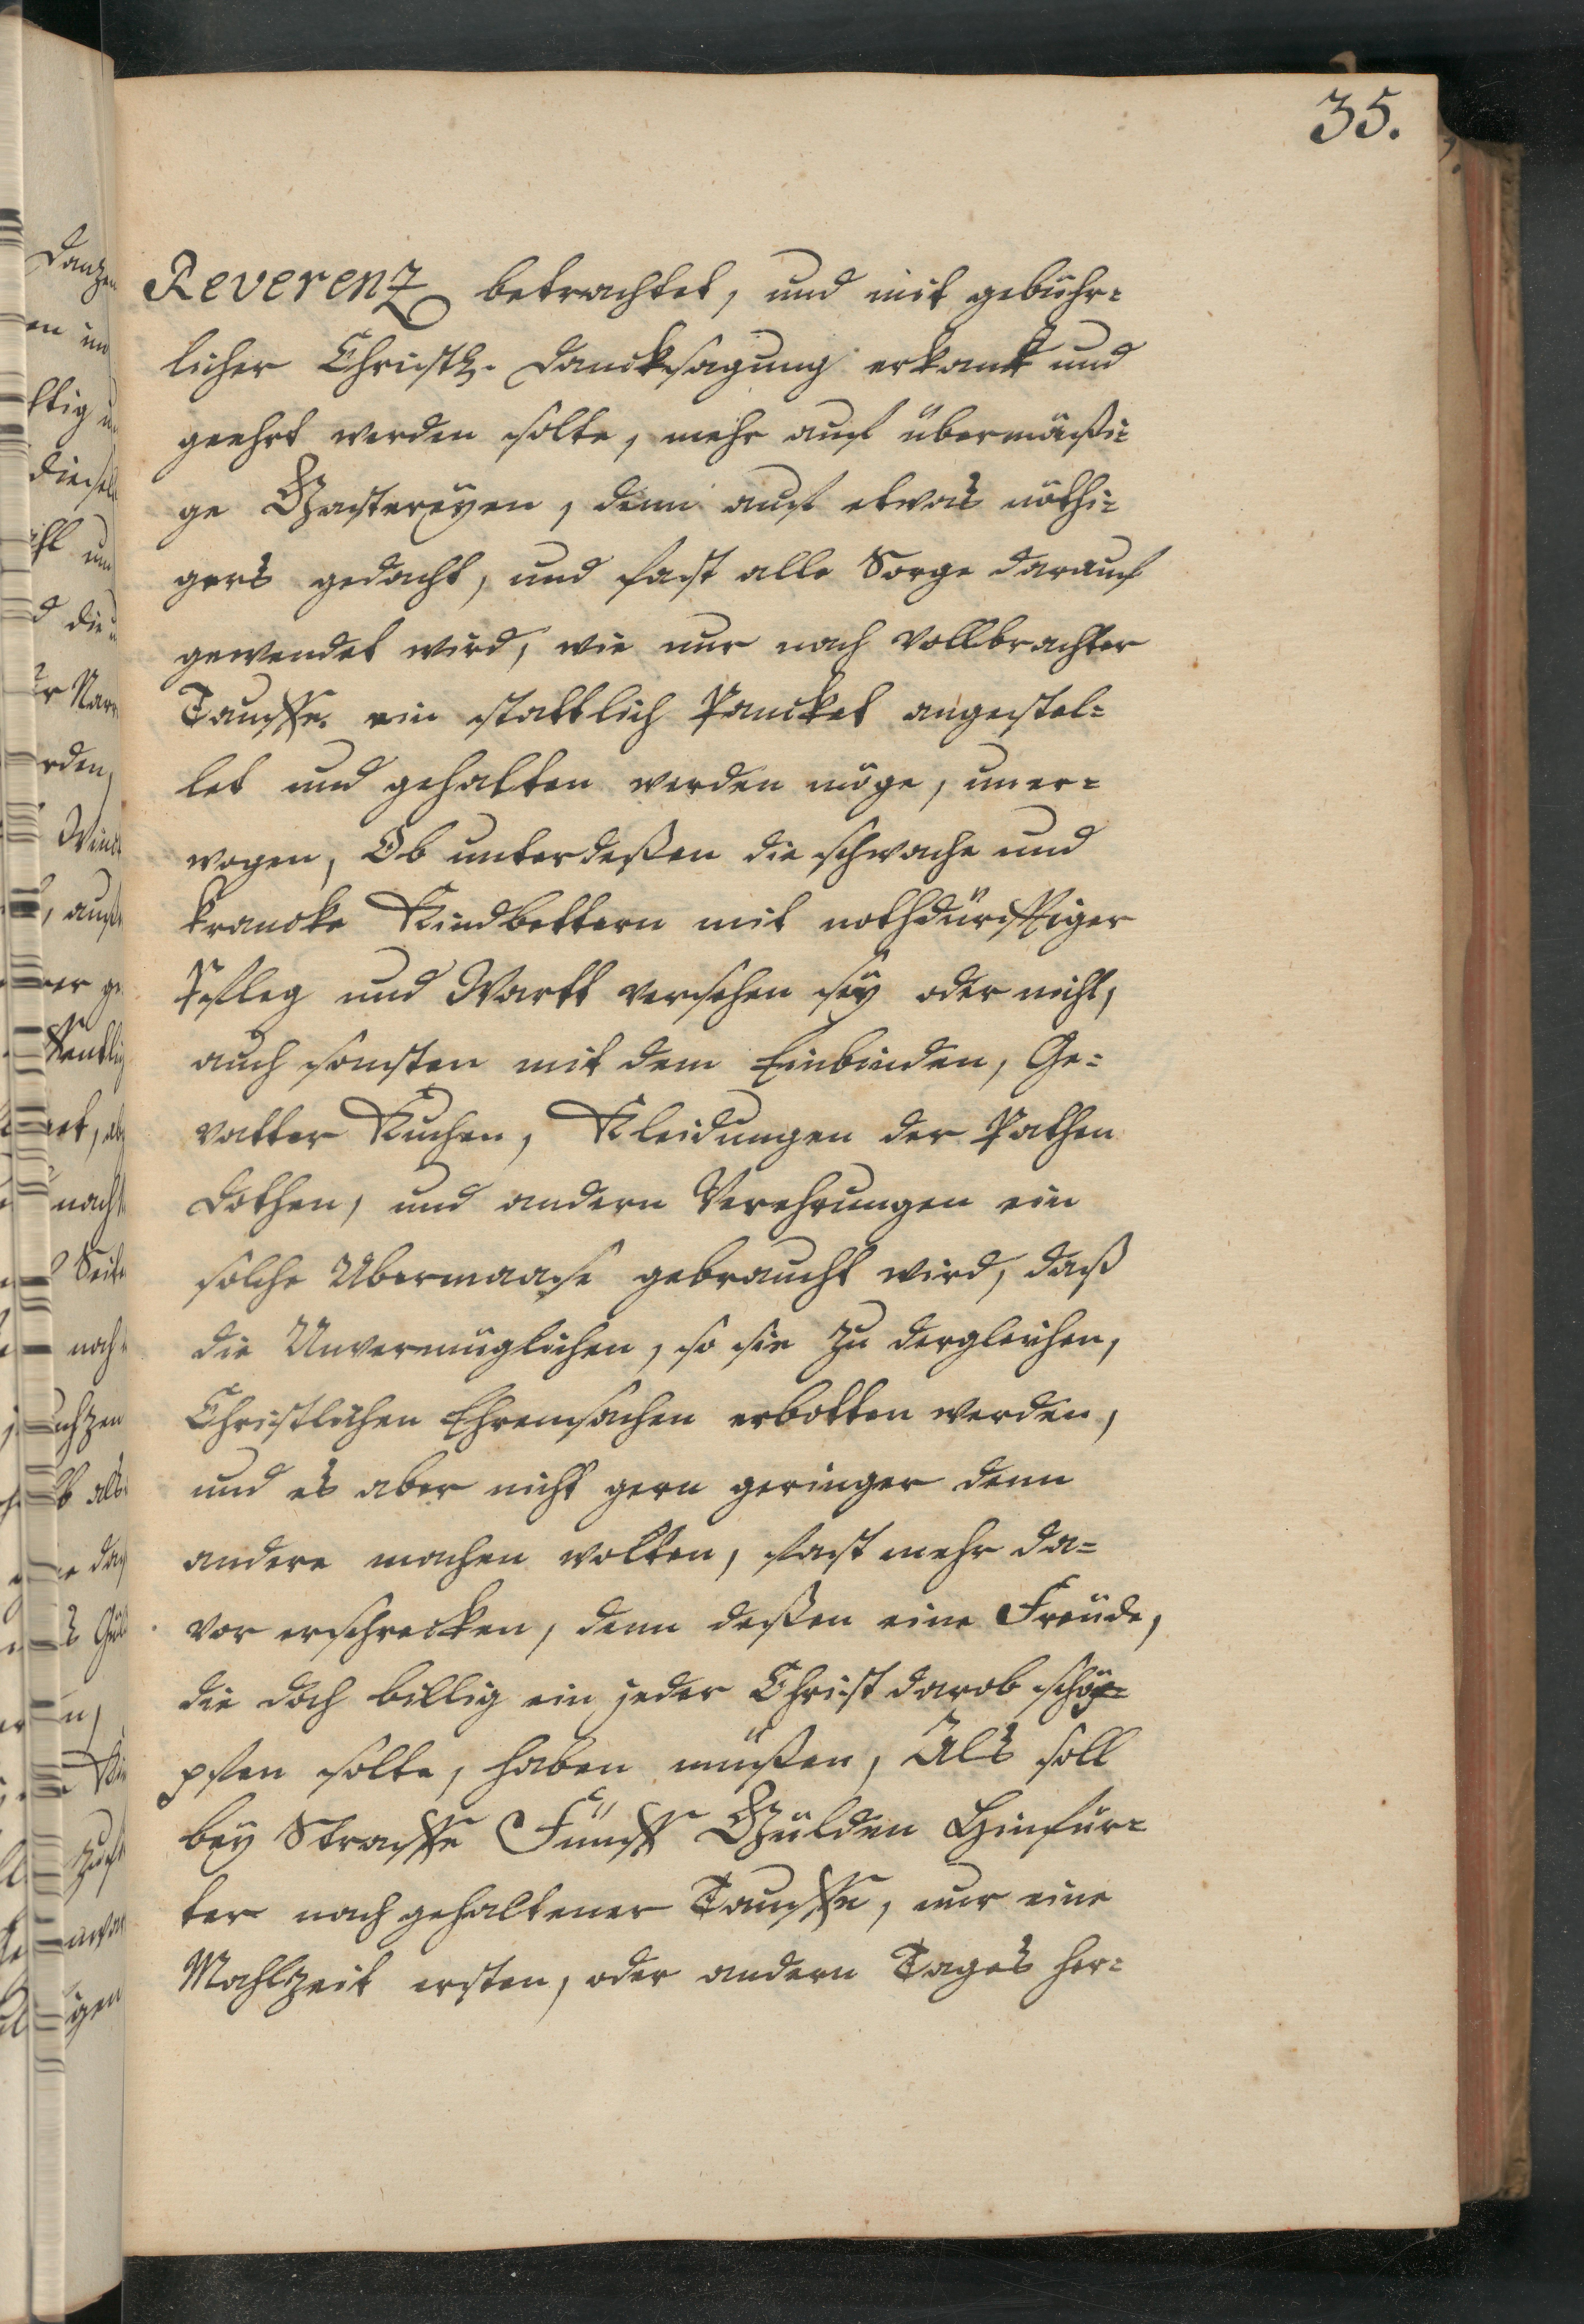 35.
Reverenz betrachtet, und mit gebühr=
licher Christl. Dancksagung erkant und
geehrt werden solte, mehr auf übermäßi=
ge Gastereyen, denn auf etwas nöthi=
gers gedacht, und fast alle Sorge darauf
gewendet wird, wie nur nach vollbrachter
Tauffe ein stattlich Pancket angestel=
let und gehalten werden möge, uner=
wogen, Ob unterdeßen die schwache und
krancke Kindbettern mit nothdürfftiger
Pfleg und Wartt versehen sey oder nicht,
auch sonsten mit dem Einbinden, Ge=
vatter Kuchen, Kleidungen der Pathen
Dothen, und andern Verehrungen ein
solche Ubermaase gebraucht wird, daß
die Unvermüglichen, so sie zu dergleichen,
Christlichen Ehrensachen erbotten werden,
und es aber nicht gern geringer denn
andere machen wolten, fast mehr da=
vor erschrecken, denn deßen eine Freude,
die doch billig ein jeder Christ darob schö=
pfen solte, haben müßen, Als soll
bey Straffe Fünff Gülden Hinfür=
ter nach gehaltener Tauffe, nur eine
Mahlzeit ersten, oder andern Tages her=